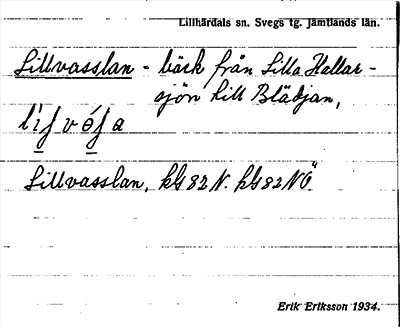 Lillhärdals sn. Svegs tg. Jämtlands län.
Lillvasslan - bäck från Lilla Hallar-
sjön till Blädjan,
Lillvasslan, kbl 82 N. kbl 82 NÖ.
Erik Eriksson 1934.